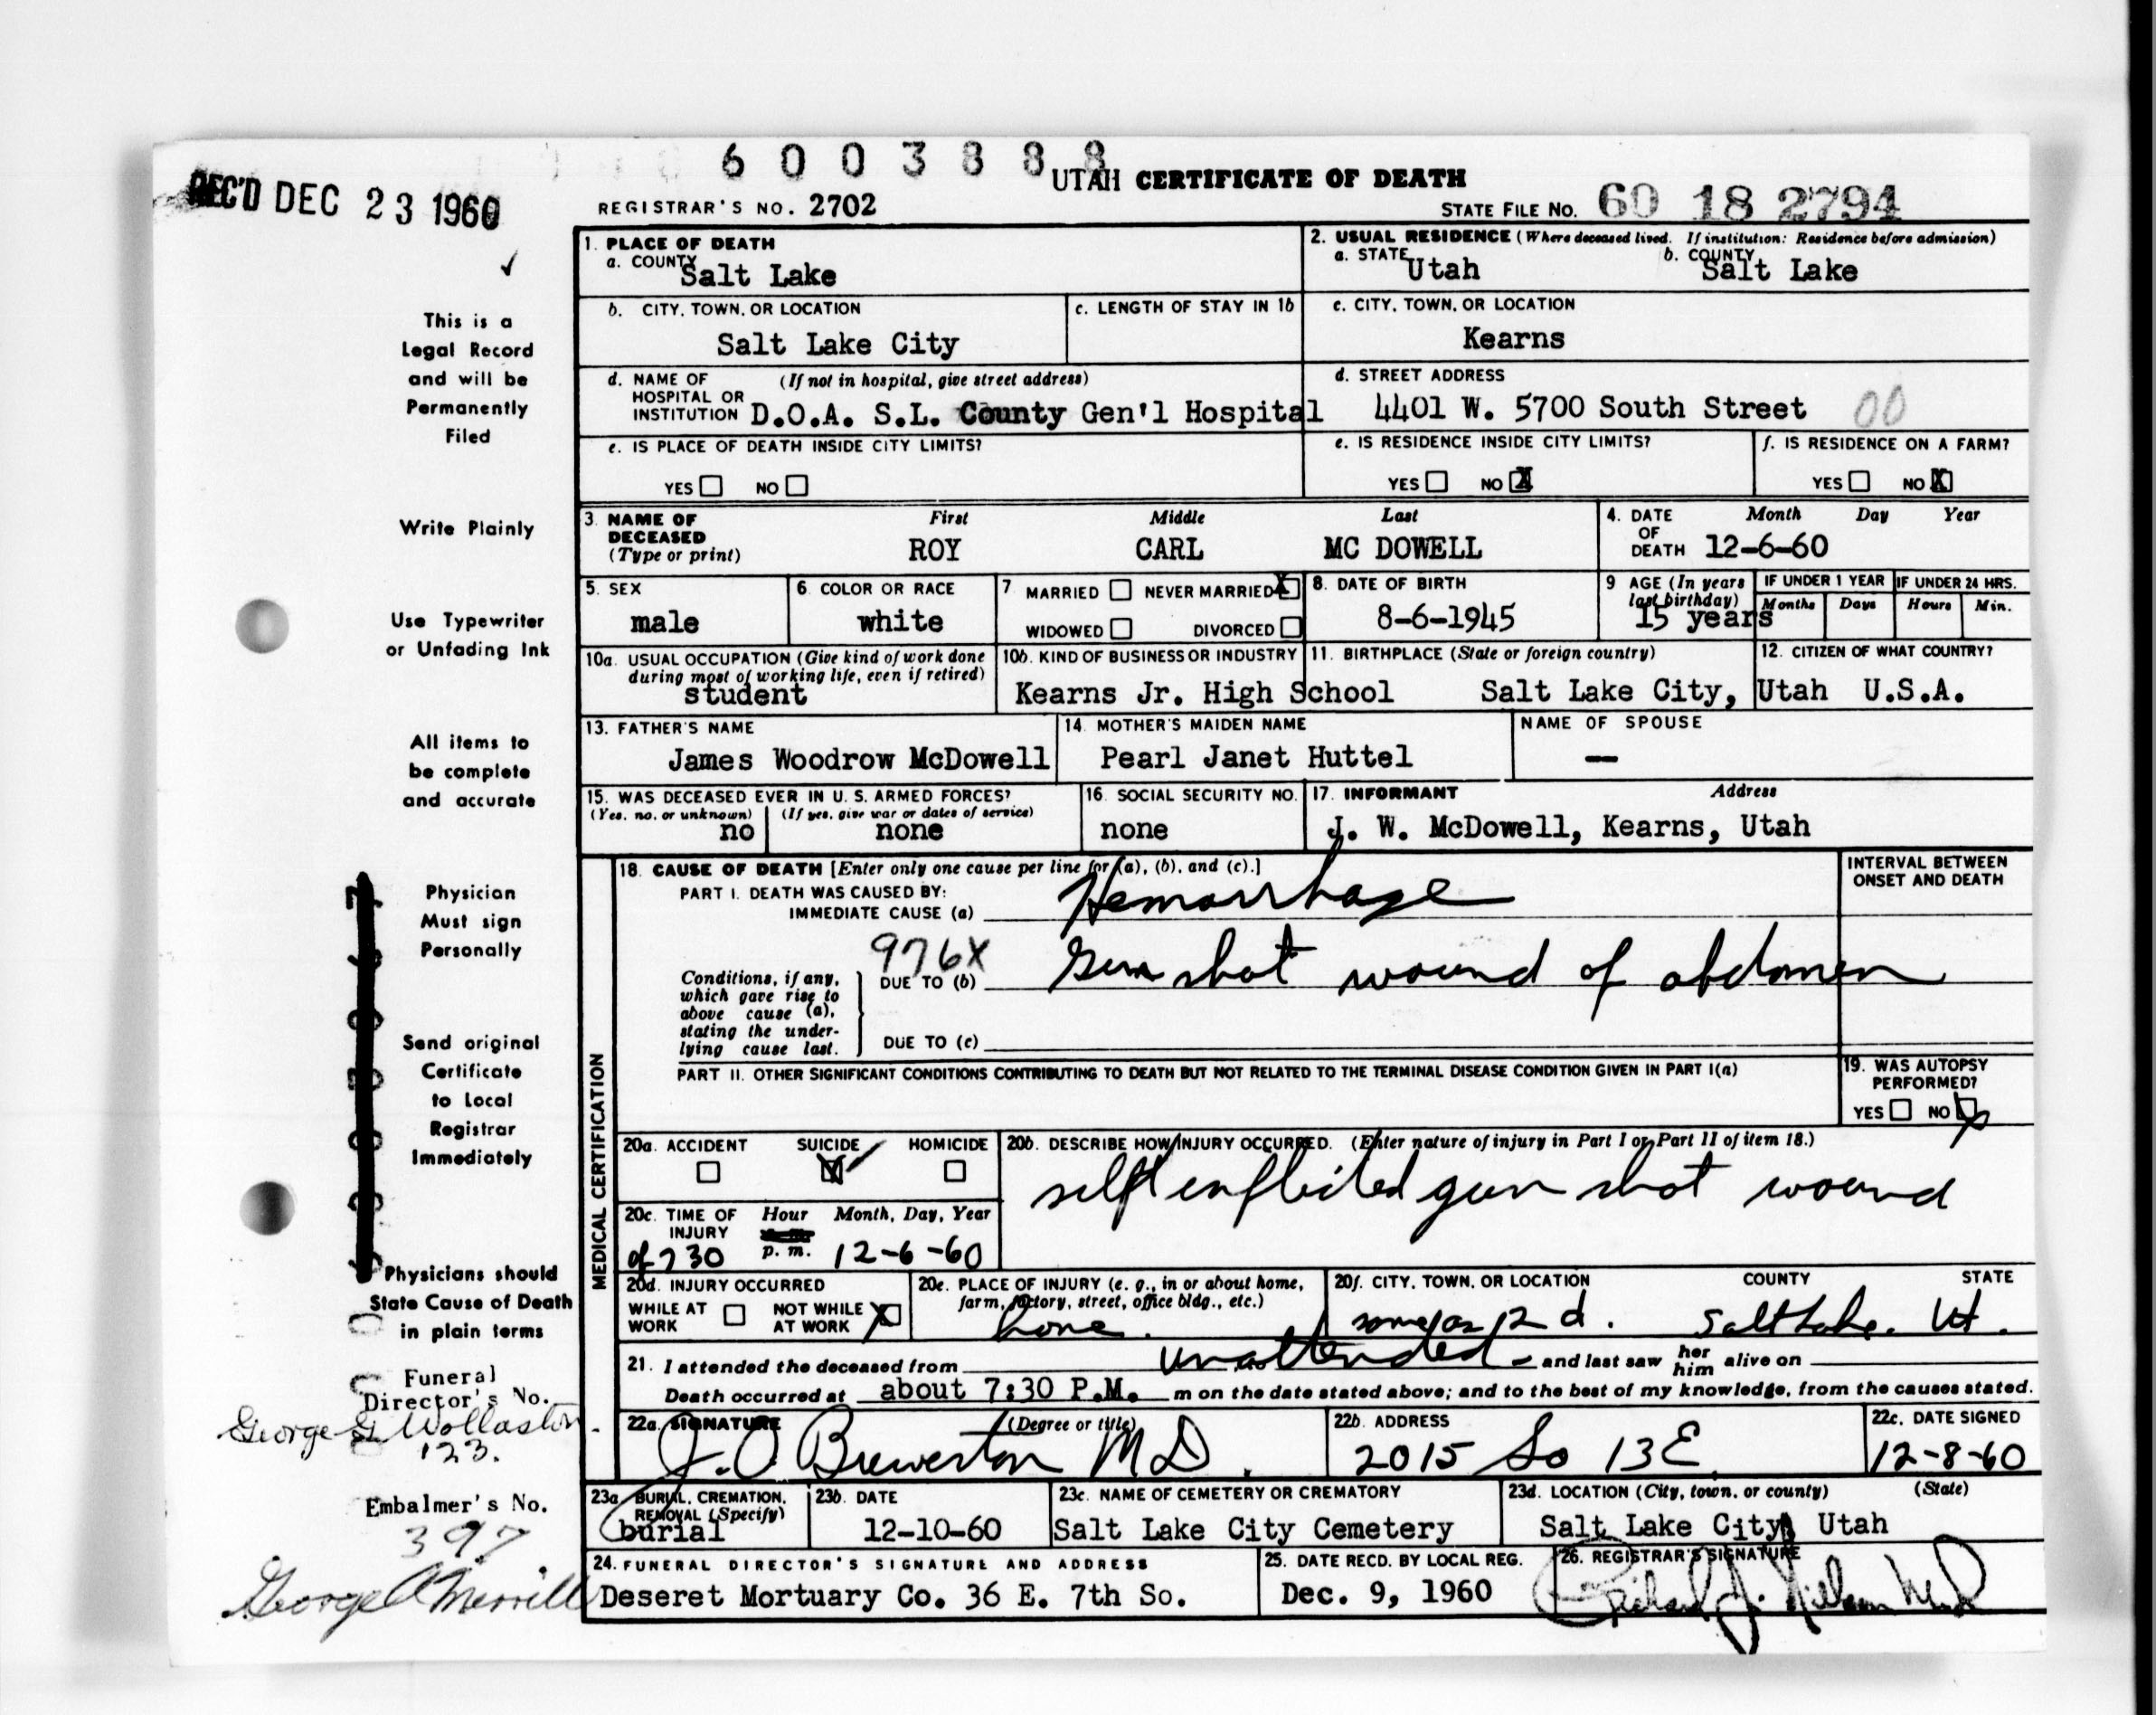 6 0 0 3 8 8 8
REC'D DEC 23 1960
UTAH CERTIFICATE OF DEATH
REGISTRAR'S NO. 2702
STATE FILE NO. 60 18 2794
This is a
Legal Record
and will be
Permanently
Filed
Write Plainly
Use Typewriter
or Unfading Ink
All items to
be complete
and accurate
Physician
Must sign
Personally
Send original
Certificate
to Local
Registrar
Immediately
Physicians should
State Cause of Death
in plain terms
Funeral
Director's No.
George G Wollaston
123.
Embalmer's No.
397
George A Merrill
1. PLACE OF DEATH
a. COUNTY Salt Lake
2. USUAL RESIDENCE (Where deceased lived. If institution: Residence before admission)
a. STATE Utah b. COUNTY Salt Lake
b. CITY, TOWN, OR LOCATION
Salt Lake City
c. LENGTH OF STAY IN 1b
c. CITY, TOWN, OR LOCATION
Kearns
d. NAME OF HOSPITAL OR INSTITUTION (If not in hospital, give street address)
D.O.A. S.L. County Gen'l Hospital
d. STREET ADDRESS
4401 W. 5700 South Street 00
e. IS PLACE OF DEATH INSIDE CITY LIMITS?
YES NO
e. IS RESIDENCE INSIDE CITY LIMITS?
YES NO X
f. IS RESIDENCE ON A FARM?
YES NO X
3. NAME OF DECEASED (Type or print)
First Middle Last
ROY CARL MC DOWELL
4. DATE OF DEATH Month Day Year
12-6-60
5. SEX
male
6. COLOR OR RACE
white
7 MARRIED NEVER MARRIED X
WIDOWED DIVORCED
8. DATE OF BIRTH
8-6-1945
9 AGE (In years last birthday)
15 years
IF UNDER 1 YEAR
Months Days
IF UNDER 24 HRS.
Hours Min.
10a. USUAL OCCUPATION (Give kind of work done during most of working life, even if retired)
student
10b. KIND OF BUSINESS OR INDUSTRY
Kearns Jr. High School
11. BIRTHPLACE (State or foreign country)
Salt Lake City, Utah
12. CITIZEN OF WHAT COUNTRY?
U.S.A.
13. FATHER'S NAME
James Woodrow McDowell
14. MOTHER'S MAIDEN NAME
Pearl Janet Huttel
NAME OF SPOUSE
—
15. WAS DECEASED EVER IN U. S. ARMED FORCES?
(Yes, no, or unknown) (If yes, give war or dates of service)
no none
16. SOCIAL SECURITY NO.
none
17. INFORMANT Address
J. W. McDowell, Kearns, Utah
MEDICAL CERTIFICATION
18. CAUSE OF DEATH [Enter only one cause per line for (a), (b), and (c).]
PART I. DEATH WAS CAUSED BY:
IMMEDIATE CAUSE (a) Hemorrhage
INTERVAL BETWEEN ONSET AND DEATH
976X
Conditions, if any, which gave rise to above cause (a), stating the underlying cause last.
DUE TO (b) Gun shot wound of abdomen
DUE TO (c)
PART II. OTHER SIGNIFICANT CONDITIONS CONTRIBUTING TO DEATH BUT NOT RELATED TO THE TERMINAL DISEASE CONDITION GIVEN IN PART I(a)
19. WAS AUTOPSY PERFORMED?
YES NO X
20a. ACCIDENT SUICIDE X HOMICIDE
20b. DESCRIBE HOW INJURY OCCURRED. (Enter nature of injury in Part I or Part II of item 18.)
self inflicted gun shot wound
20c. TIME OF INJURY Hour Month, Day, Year
730 p. m. 12-6-60
20d. INJURY OCCURRED
WHILE AT WORK NOT WHILE AT WORK X
20e. PLACE OF INJURY (e. g., in or about home, farm, factory, street, office bldg., etc.)
home.
20f. CITY, TOWN, OR LOCATION COUNTY STATE
same as 2 d. Salt Lake. Ut.
21. I attended the deceased from unattended - and last saw her him alive on
Death occurred at about 7:30 P.M. m on the date stated above; and to the best of my knowledge, from the causes stated.
22a. SIGNATURE (Degree or title)
J. O. Brewerton M D.
22b. ADDRESS
2015 So 13 E
22c. DATE SIGNED
12-8-60
23a BURIAL, CREMATION, REMOVAL (Specify)
burial
23b. DATE
12-10-60
23c. NAME OF CEMETERY OR CREMATORY
Salt Lake City Cemetery
23d. LOCATION (City, town, or county) (State)
Salt Lake City, Utah
24. FUNERAL DIRECTOR'S SIGNATURE AND ADDRESS
Deseret Mortuary Co. 36 E. 7th So.
25. DATE RECD. BY LOCAL REG.
Dec. 9, 1960
26. REGISTRAR'S SIGNATURE